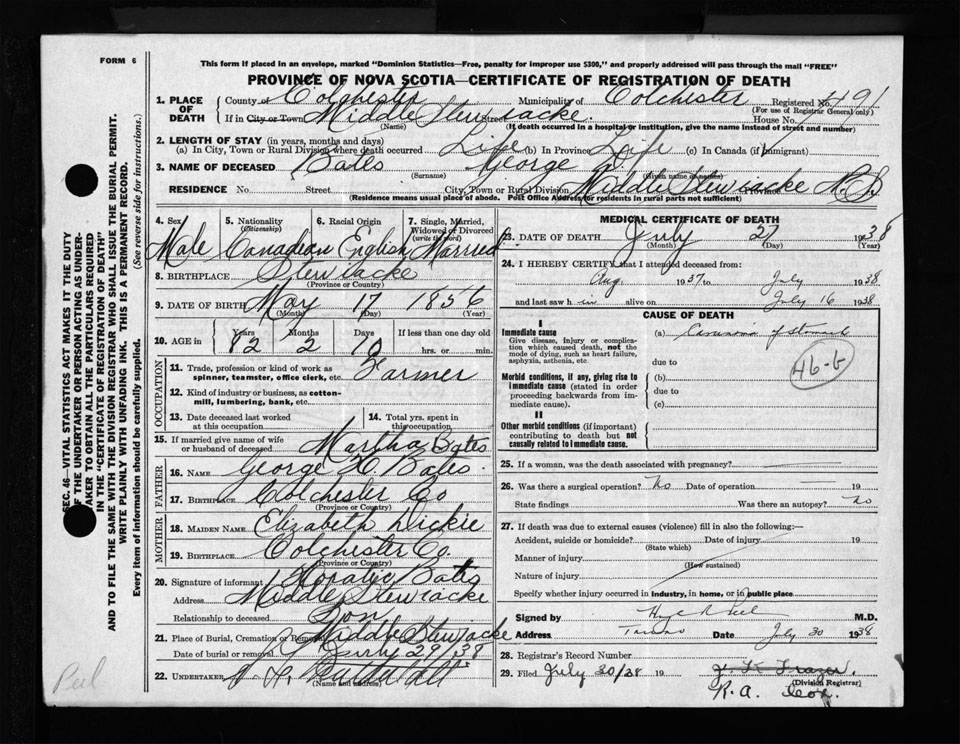 FORM 6
This form if placed in an envelope, marked "Dominion Statistics—Free, penalty for improper use $300," and properly addressed will pass through the mail "FREE"
PROVINCE OF NOVA SCOTIA—CERTIFICATE OF REGISTRATION OF DEATH
1. PLACE OF DEATH County of Colchester Municipality of Colchester Registered No. 491
(For use of Registrar General only)
If in City or Town Middle Stewiacke Street House No.
(Name) (If death occurred in a hospital or institution, give the name instead of street and number)
2. LENGTH OF STAY (in years, months and days)
(a) In City, Town or Rural Division where death occurred Life (b) In Province Life (c) In Canada (if immigrant)
3. NAME OF DECEASED Bates George
(Surname) (Given name)
RESIDENCE No. Street City, Town or Rural Division Middle Stewiacke N.S.
(Residence means usual place of abode. Post Office Address for residents in rural parts not sufficient) Province
4. Sex Male
5. Nationality (Citizenship) Canadian
6. Racial Origin English
7. Single, Married, Widowed or Divorced (write the word) Married
8. BIRTHPLACE Stewiacke
(Province or Country)
9. DATE OF BIRTH May 17 1856
(Month) (Day) (Year)
10. AGE in Years Months Days If less than one day old
82 2 10 hrs. or min.
OCCUPATION
11. Trade, profession or kind of work as spinner, teamster, office clerk, etc. Farmer
12. Kind of industry or business, as cotton-mill, lumbering, bank, etc.
13. Date deceased last worked at this occupation
14. Total yrs. spent in this occupation
15. If married give name of wife or husband of deceased Martha Bates
FATHER
16. NAME George Bates
17. BIRTHPLACE Colchester Co
(Province or Country)
MOTHER
18. MAIDEN NAME Elizabeth Dickie
19. BIRTHPLACE Colchester Co.
(Province or Country)
20. Signature of informant Horatio Bates
Address Middle Stewiacke
Relationship to deceased Son
21. Place of Burial, Cremation or Removal Middle Stewiacke
Date of burial or removal July 29/38
22. UNDERTAKER
(Name and address)
MEDICAL CERTIFICATE OF DEATH
23. DATE OF DEATH July 27 1938
(Month) (Day) (Year)
24. I HEREBY CERTIFY that I attended deceased from:
Aug. 1937 to July 1938
and last saw h im alive on July 16 1938
CAUSE OF DEATH
I
Immediate cause (a) Carcinoma of Stomach
Give disease, injury or complication which caused death, not the mode of dying, such as heart failure, asphyxia, asthenia, etc.
46-b
due to
Morbid conditions, if any, giving rise to immediate cause (stated in order proceeding backwards from immediate cause). (b)
due to
(c)
II
Other morbid conditions (if important) contributing to death but not causally related to immediate cause.
25. If a woman, was the death associated with pregnancy?
26. Was there a surgical operation? No Date of operation 19
State findings Was there an autopsy? No
27. If death was due to external causes (violence) fill in also the following:—
Accident, suicide or homicide? Date of injury 19
(State which)
Manner of injury
(How sustained)
Nature of injury
Specify whether injury occurred in industry, in home, or in public place
Signed by M.D.
Address Truro Date July 30 1938
28. Registrar's Record Number
29. Filed July 30/38 19 Frazer,
(Division Registrar)
R.A. Cox.
SEC. 46—VITAL STATISTICS ACT MAKES IT THE DUTY
OF THE UNDERTAKER OR PERSON ACTING AS UNDERTAKER
TO OBTAIN ALL THE PARTICULARS REQUIRED
IN THE "CERTIFICATE OF REGISTRATION OF DEATH"
AND TO FILE THE SAME WITH THE DIVISION REGISTRAR WHO SHALL ISSUE THE BURIAL PERMIT.
WRITE PLAINLY WITH UNFADING INK. THIS IS A PERMANENT RECORD.
Every item of information should be carefully supplied. (See reverse side for instructions.)
Peel